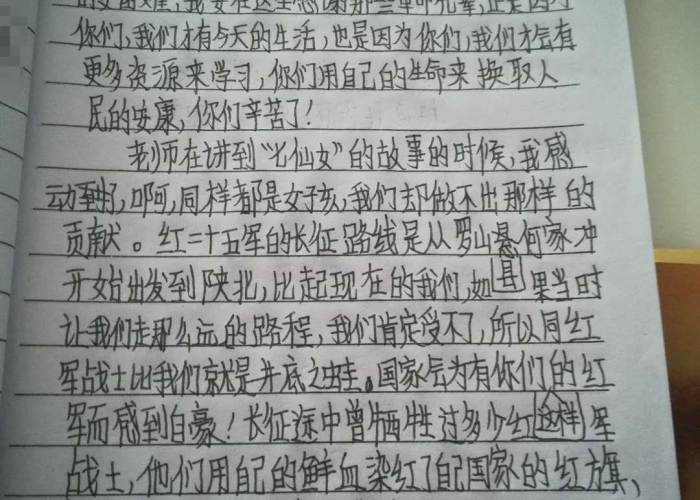 的艰难,我要在这里感谢那些革命先辈,正是因为
你们,我们才有今天的生活,也是因为你们,我们才会有
更多资源来学习,你们用自己的生命来换取人
民的安康,你们辛苦了!
老师在讲到“七仙女”的故事的时候,我感
动到了,啊,同样都是女孩,我们却做不出那样的
贡献。红二十五军的长征路线是从罗山县何家冲
开始出发到陕北,比起现在的我们,如果当时
让我们走那么远的路程,我们肯定受不了,所以同红
军战士比我们就是井底之蛙。国家会为有你们的红
军而感到自豪!长征途中曾牺牲过多少红这样军
战士,他们用自己的鲜血染红了自己国家的红旗、